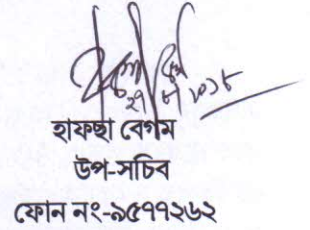 হাফছা বেগম
উপ-সচিব
ফোন নং-৯৫৭৭২৬২